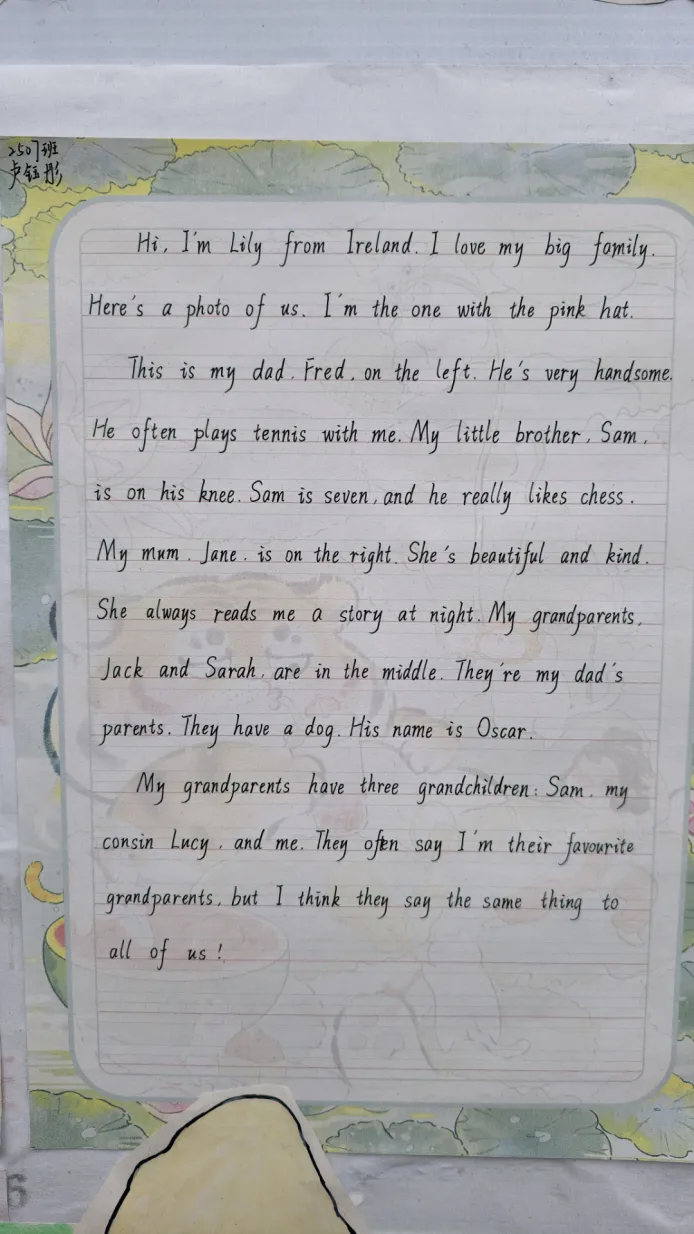 2507班
卢钰彤
Hi, I'm Lily from Ireland. I love my big family.
Here's a photo of us. I'm the one with the pink hat.
This is my dad, Fred, on the left. He's very handsome.
He often plays tennis with me. My little brother, Sam,
is on his knee. Sam is seven, and he really likes chess.
My mum, Jane, is on the right. She's beautiful and kind.
She always reads me a story at night. My grandparents,
Jack and Sarah, are in the middle. They're my dad's
parents. They have a dog. His name is Oscar.
My grandparents have three grandchildren: Sam, my
consin Lucy, and me. They often say I'm their favourite
grandparents, but I think they say the same thing to
all of us!